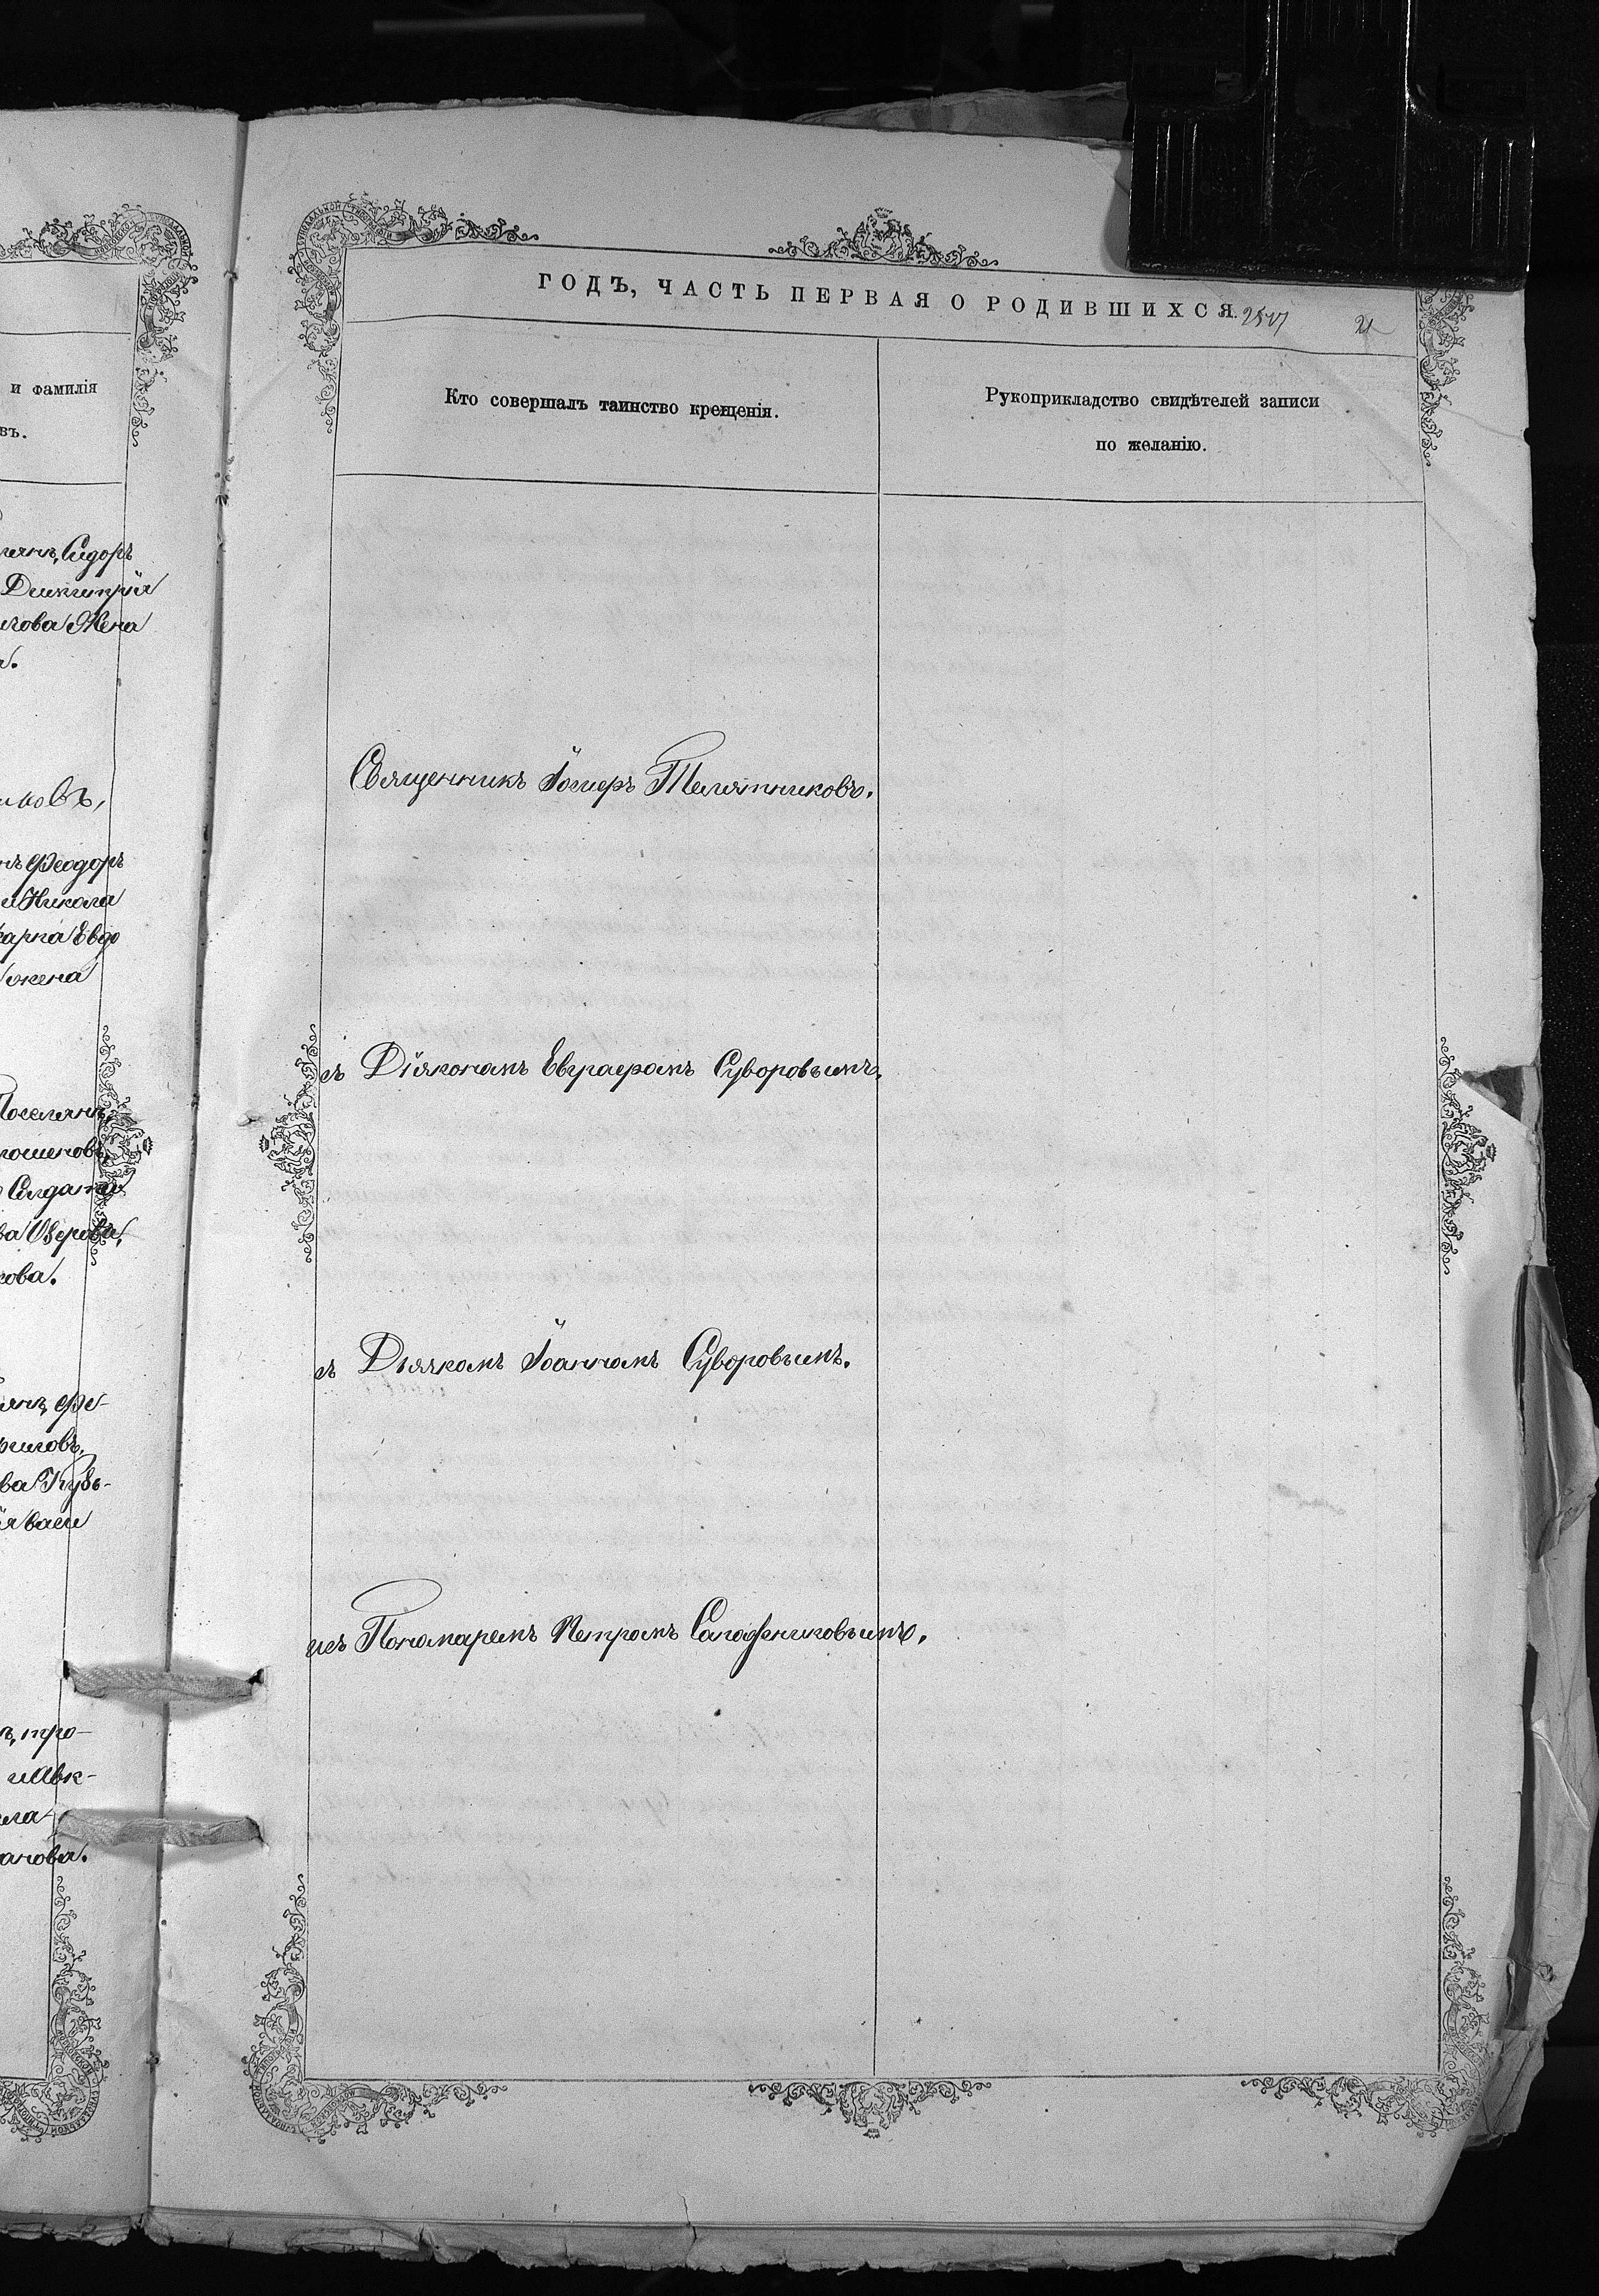 и фамилія
въ.
Сидоръ
Димитрія
Жена
Феодоръ
Никола
Евдо
жена
Поселянъ,
Солдатка
Озерова,
кова.
Фе-
ва Кузь-
тро-
анова.
ГОДЪ, ЧАСТЬ ПЕРВАЯ О РОДИВШИХСЯ.
Кто совершалъ таинство крещенія.
Рукоприкладство свидѣтелей записи
по желанію.
Священникъ Іосифъ Телятниковъ.
съ Діякономъ Евграфомъ Суворовымъ,
съ Дьячкомъ Іоанномъ Суворовымъ.
и съ Пономаремъ Петромъ Сапожниковымъ.